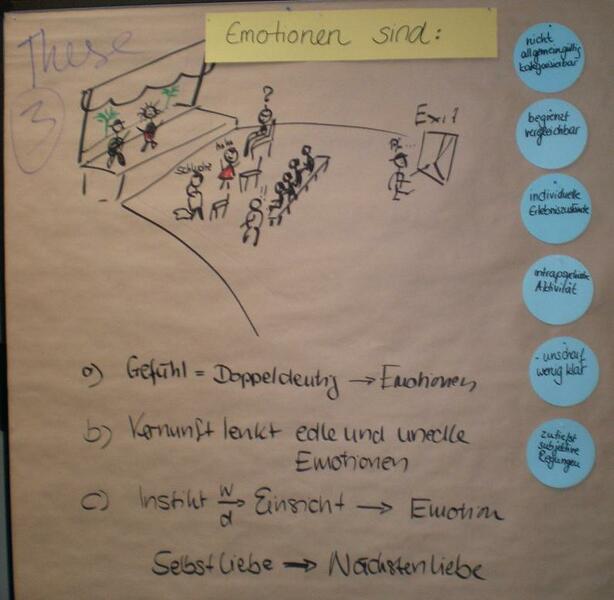 These
3
Emotionen sind:
nicht
allgemeingültig
kategorisierbar
begrenzt
vergleichbar
individuelle
Erlebniszustände
intrapsychische
Aktivität
- unscharf
wenig klar
zutiefst
subjektive
Regungen
?
haha
schluchz
!!
Exit
a) Gefühl = Doppeldeutig → Emotionen
b) Vernunft lenkt edle und unedle
Emotionen
c) Instikt w/d → Einsicht → Emotion
Selbstliebe → Nächstenliebe